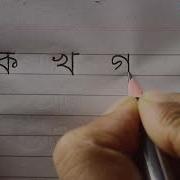 ক খ গ